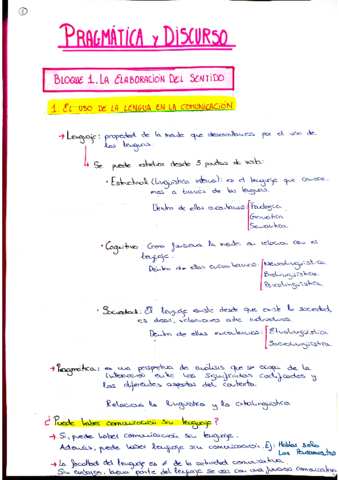 1
PRAGMÁTICA Y DISCURSO
BLOQUE 1. LA ELABORACIÓN DEL SENTIDO
1. EL USO DE LA LENGUA EN LA COMUNICACIÓN
→ Lenguaje: propiedad de la mente que desarrollamos por el uso de
las lenguas.
↳ Se puede estudiar desde 3 puntos de vista:
· Estructural (Lingüística interna): es el lenguaje que conoce-
mos a través de las lenguas.
Dentro de ellas encontramos: Fonología
Gramática
Semántica
· Cognitivo: Como funciona la mente en relación con el
lenguaje.
Dentro de ellas encontramos: Neurolingüística
Biolingüística
Psicolingüística
· Sociedad: El lenguaje existe desde que existe la sociedad,
es decir, relaciones entre individuos.
Dentro de ellas encontramos: Etnolingüística
Sociolingüística
→ Pragmática: es una perspectiva de análisis que se ocupa de la
interacción entre los significados codificados y
los diferentes aspectos del contexto.
Relaciona lo lingüístico y lo extralingüístico
¿Puede haber comunicación sin lenguaje?
→ Sí, puede haber comunicación sin lenguaje.
Además, puede haber lenguaje sin comunicación. Ej: Hablar solo
Los Pensamientos
→ La facultad del lenguaje es ≠ de la actividad comunicativa.
Sin embargo, buena parte del lenguaje se usa con una función comunicativa